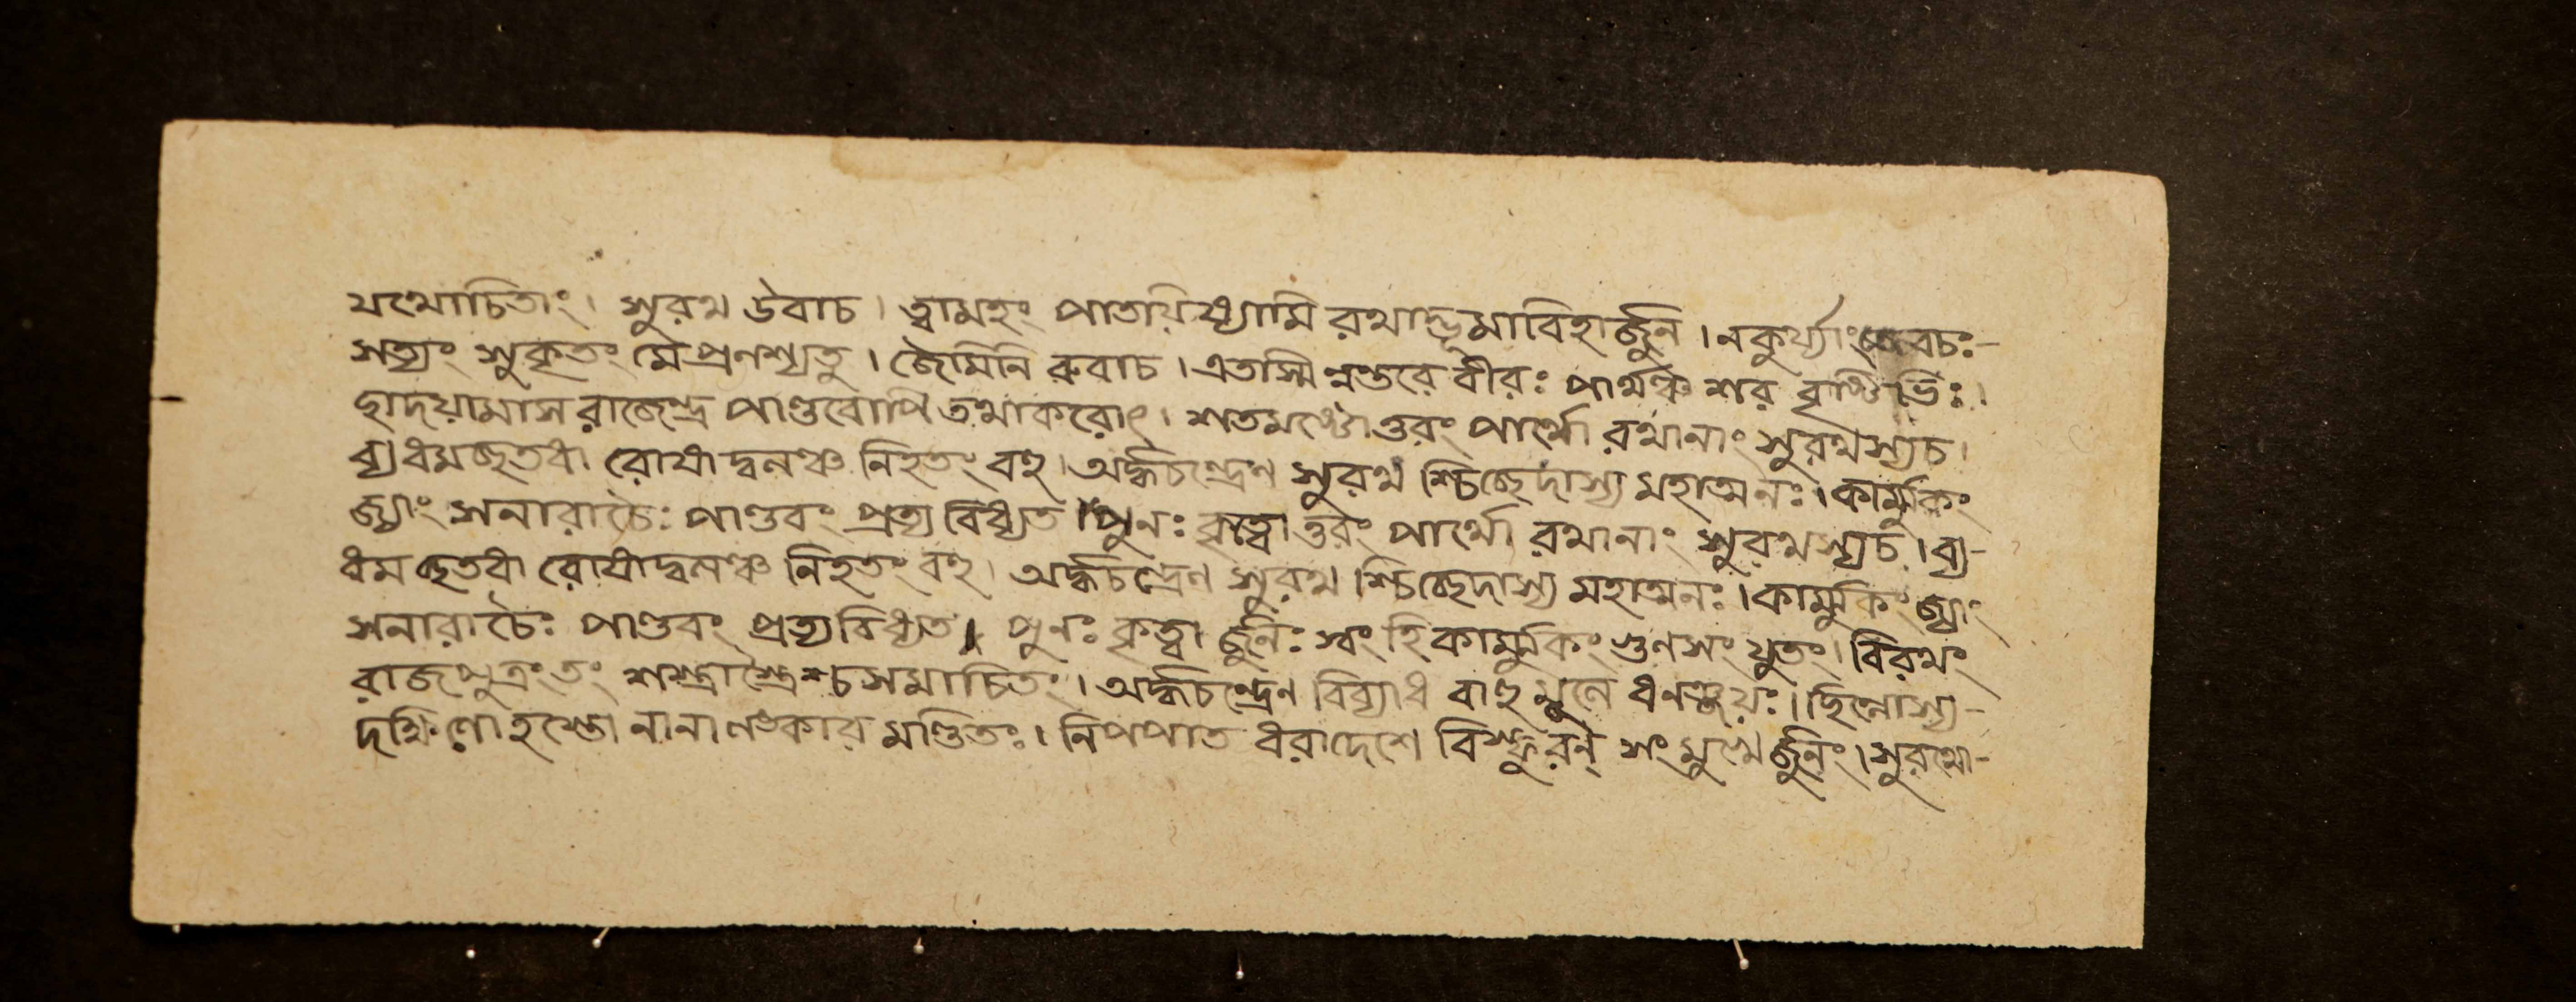 যথোচিতাং। সুরথ উবাচ। ত্বামহং পাতয়িষ্যামি রথাদ্ভূমাবিহার্জুন। নকুর্য্যাং বচঃ-
সত্যং সুকৃতং মে প্রনশ্যতু। জৈমিনি রুবাচ। এতস্মি ন্নন্তরে বীরঃ পার্থঞ্চ শর বৃষ্টিভিঃ।
ছাদয়ামাস রাজেন্দ্র পাণ্ডবোপি তথাকরোৎ। শতমষ্টোত্তরং পার্থো রথানাং সুরথস্যচ।
ব্যধমচ্ছতধা রোষাদ্বলঞ্চ নিহতং বহু। অর্দ্ধচন্দ্রেণ সুরথ শ্চিচ্ছেদাস্য মহাত্মনঃ। কার্ম্মুকং
জ্যাং সনারাচৈঃ পাণ্ডবং প্রত্য বিধ্যত। পুনঃ কৃত্বোত্তরং পার্থো রথানাং সুরথস্যচ। ব্য-
ধম চ্ছতধা রোষাদ্বলঞ্চ নিহতং বহু। অর্দ্ধচন্দ্রেণ সুরথ শ্চিচ্ছেদাস্য মহাত্মনঃ। কার্ম্মুকং জ্যাং
সনারাচৈঃ পাণ্ডবং প্রত্যবিধ্যত। পুনঃ কৃত্বা র্জুনঃ স্বং হি কার্ম্মুকং গুণসং যুতং। বিরথং
রাজপুত্রং তং শস্ত্রাস্ত্রৈশ্চসমাচিতং। অর্দ্ধচন্দ্রেণ বিব্যাধ বাহুমূলে ধনঞ্জয়ঃ। ছিন্নোস্য-
দক্ষিণো হস্তো নানালঙ্কার মণ্ডিতঃ। নিপপাত ধরাদেশে বিস্ফুরন্ সংমুখে র্জুনং। সুরথো-